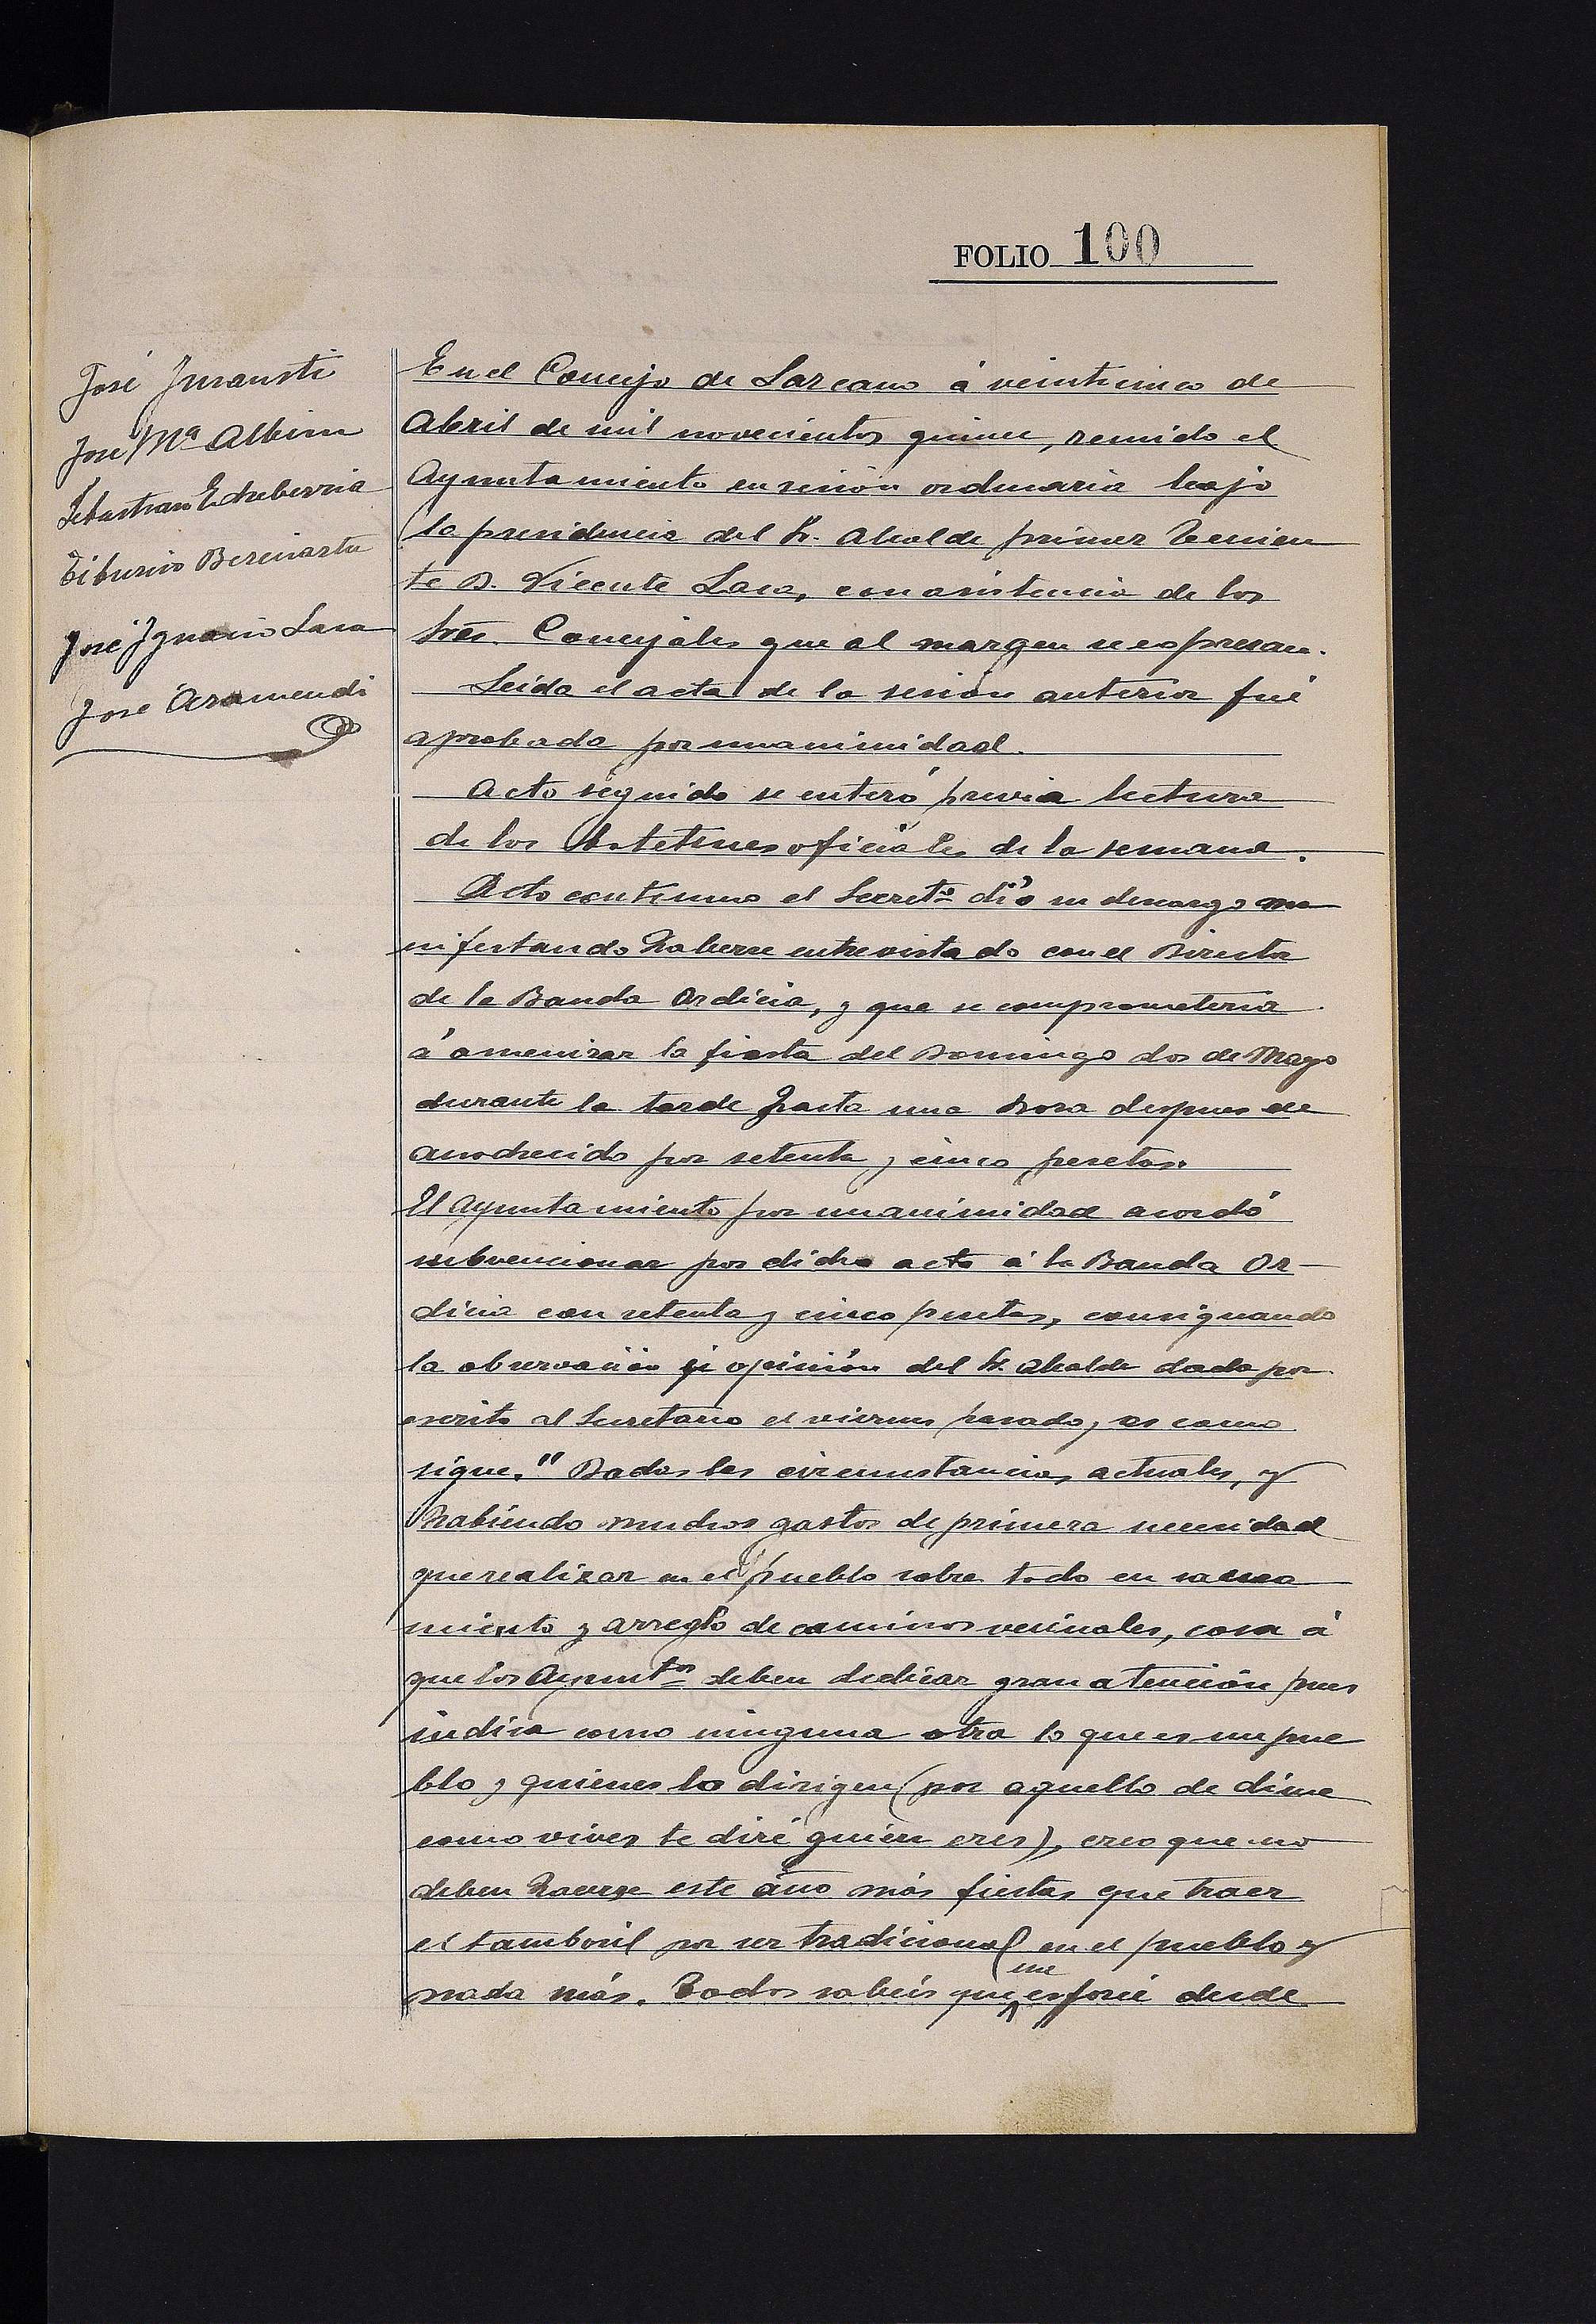 FOLIO 100
José Inrausti
José Mª Albisu
Sebastian Echeberria
Tiburcio Bereciartu
José Ignacio Lasa
José Aramendi
En el Concejo de Lazcano á veinticinco de
Abril de mil novecientos quince, reunido el
Ayuntamiento en sesión ordinaria bajo
la presidencia del Sr. Alcalde primer Tenien
te D. Vicente Lasa, con asistencia de los
Sres. Concejales que al margen se expresan.
Leida el acta de la sesión anterior fué
aprobada por unanimidad.
Acto seguido se enteró previa lectura
de los Boletines oficiales de la semana.
Acto continuo el Secretº dió su descargo ma
nifestando haberse entrevistado con el Director
de la Banda Ordicia, y que se comprometeria
á amenizar la fiesta del Domingo dos de Mayo
durante la tarde hasta una hora despues de
anochecido por setenta y cinco pesetas.
El Ayuntamiento por unanimidad acordó
subvencionar por dicho acto á la Banda Or-
dicia con setenta y cinco pesetas, consignando
la observación ú opinión del Sr. Alcalde dada por
escrito al Secretario el viernes pasado, es como
sigue. "Dadas las circunstancias actuales, y
habiendo muchos gastos de primera necesidad
que realizar en el pueblo sobre todo en sanea
miento y arreglo de caminos vecinales, cosa á
que los Ayuntos deben dedicar gran atención pues
indica como ninguna otra lo que es un pue
blo y quienes lo dirigen (por aquello de dime
como vives te diré quien eres), creo que no
deben hacerse este año más fiestas que traer
el tamboril por ser tradicional en el pueblo y
nada más. Todos sabéis que me esforcé desde